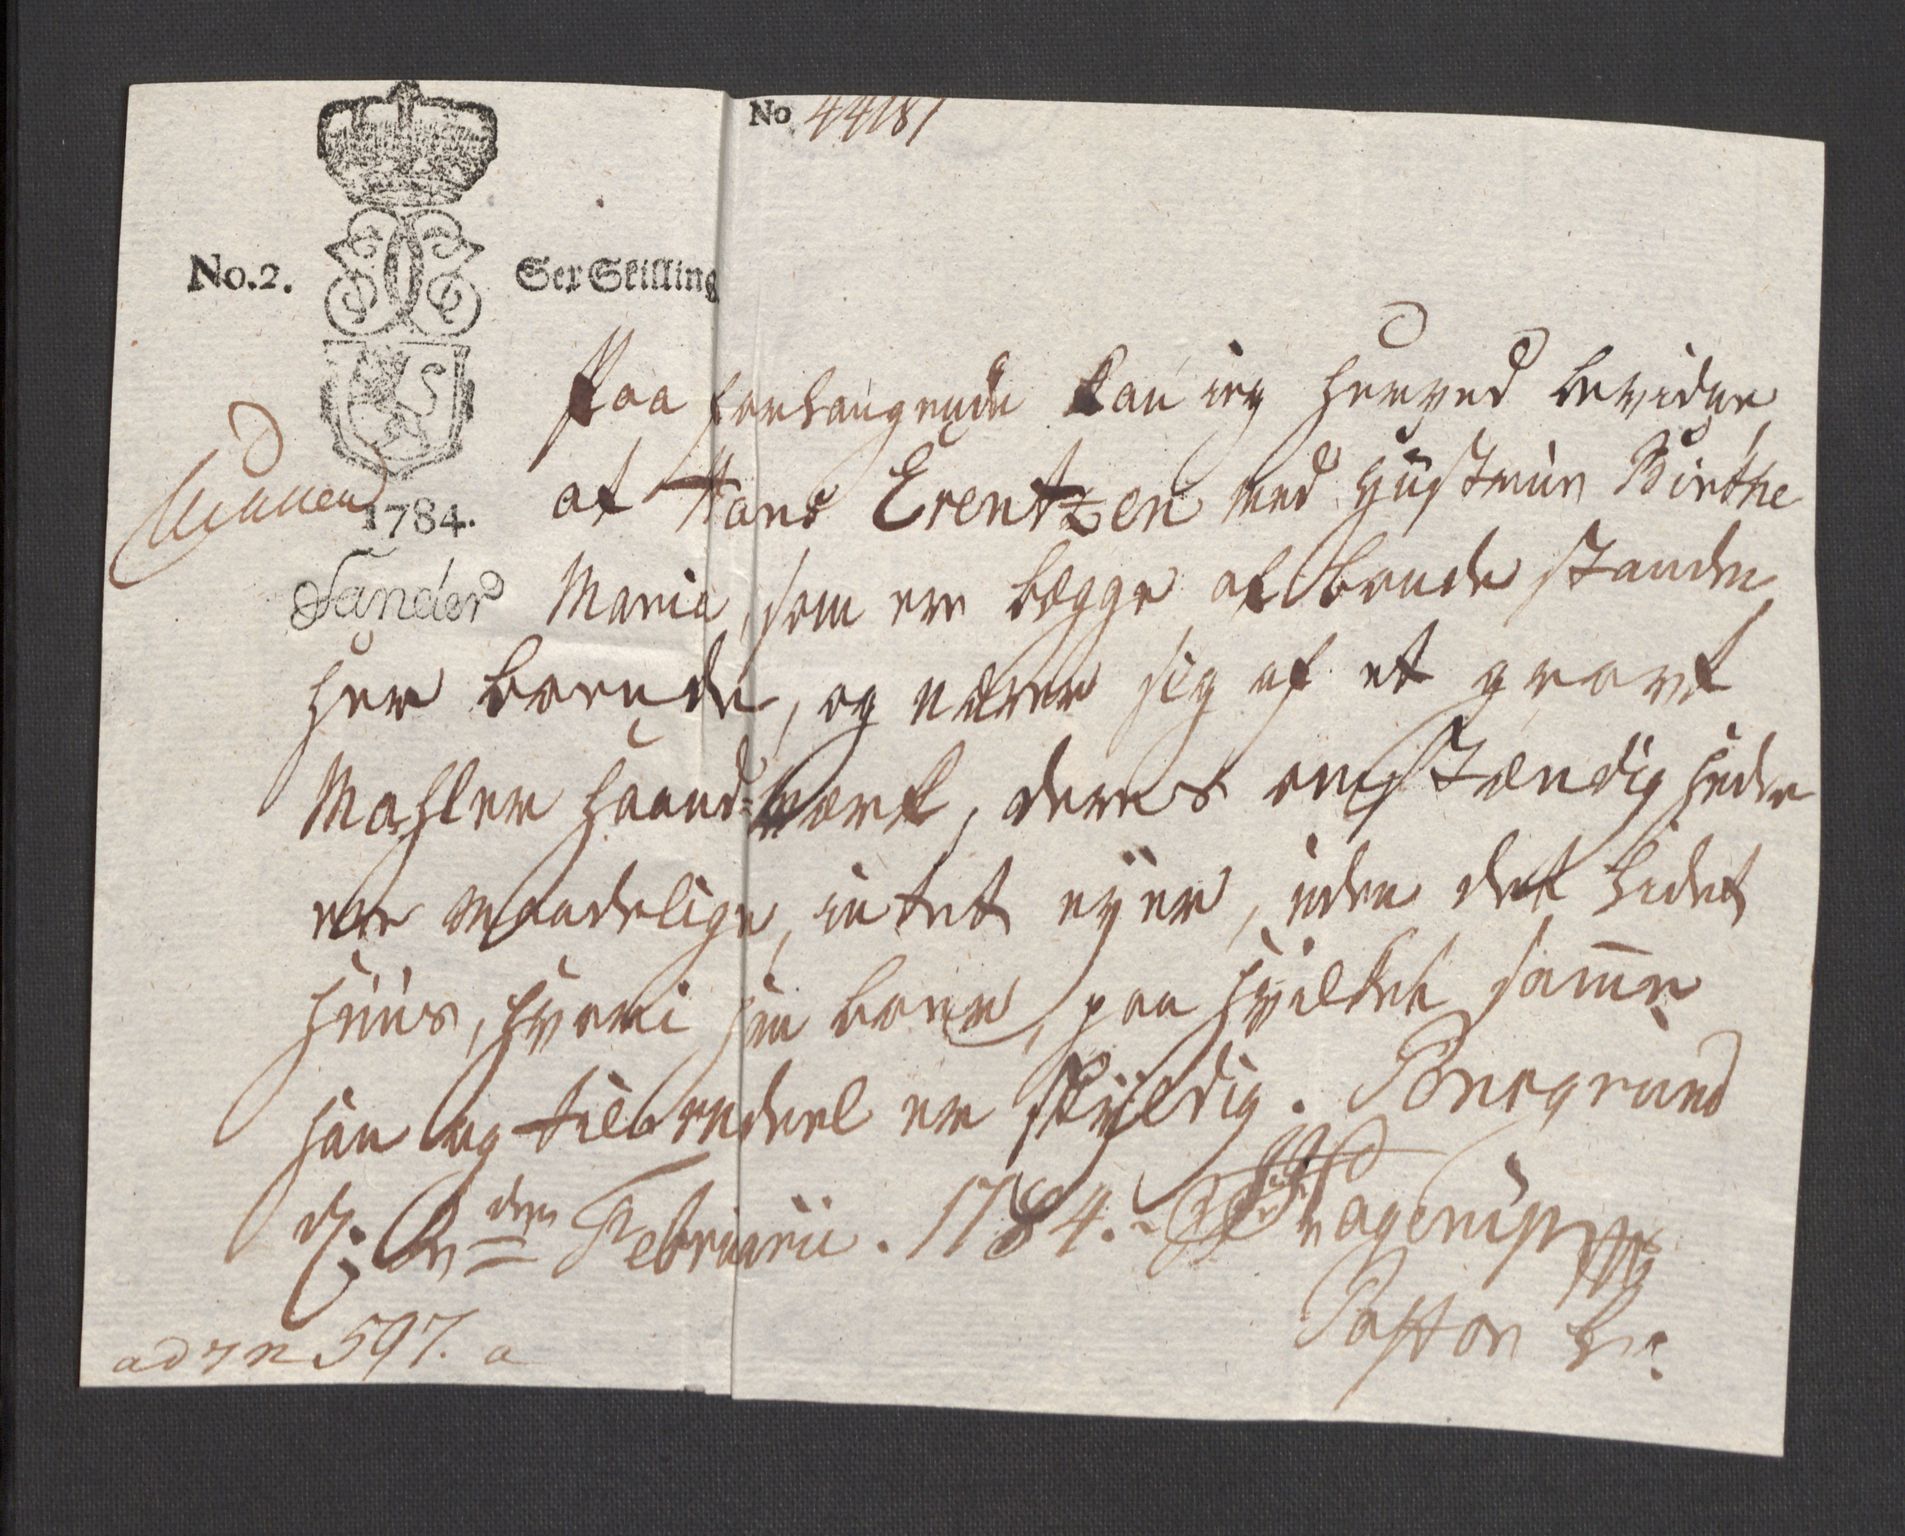 No 44181
No.2. Sex Skilling
1784.
Sander
Paa forlangende kan ieg herved bevidne
at Hans Erentzen med Hustrue Birthe
Maria, som ere begge af bonde standen
her boende, og nærer sig af et grovt
Mahler haand-værk, deres omstændigheder
ere maadelige, intet eyer, uden det lidet
huus, hvori han boer, paa hvilket samme
han og tilbendeel er skyldig. Porsgrund
d. den Februarii. 1784. Hagerup
Pastor
ad in 597. a